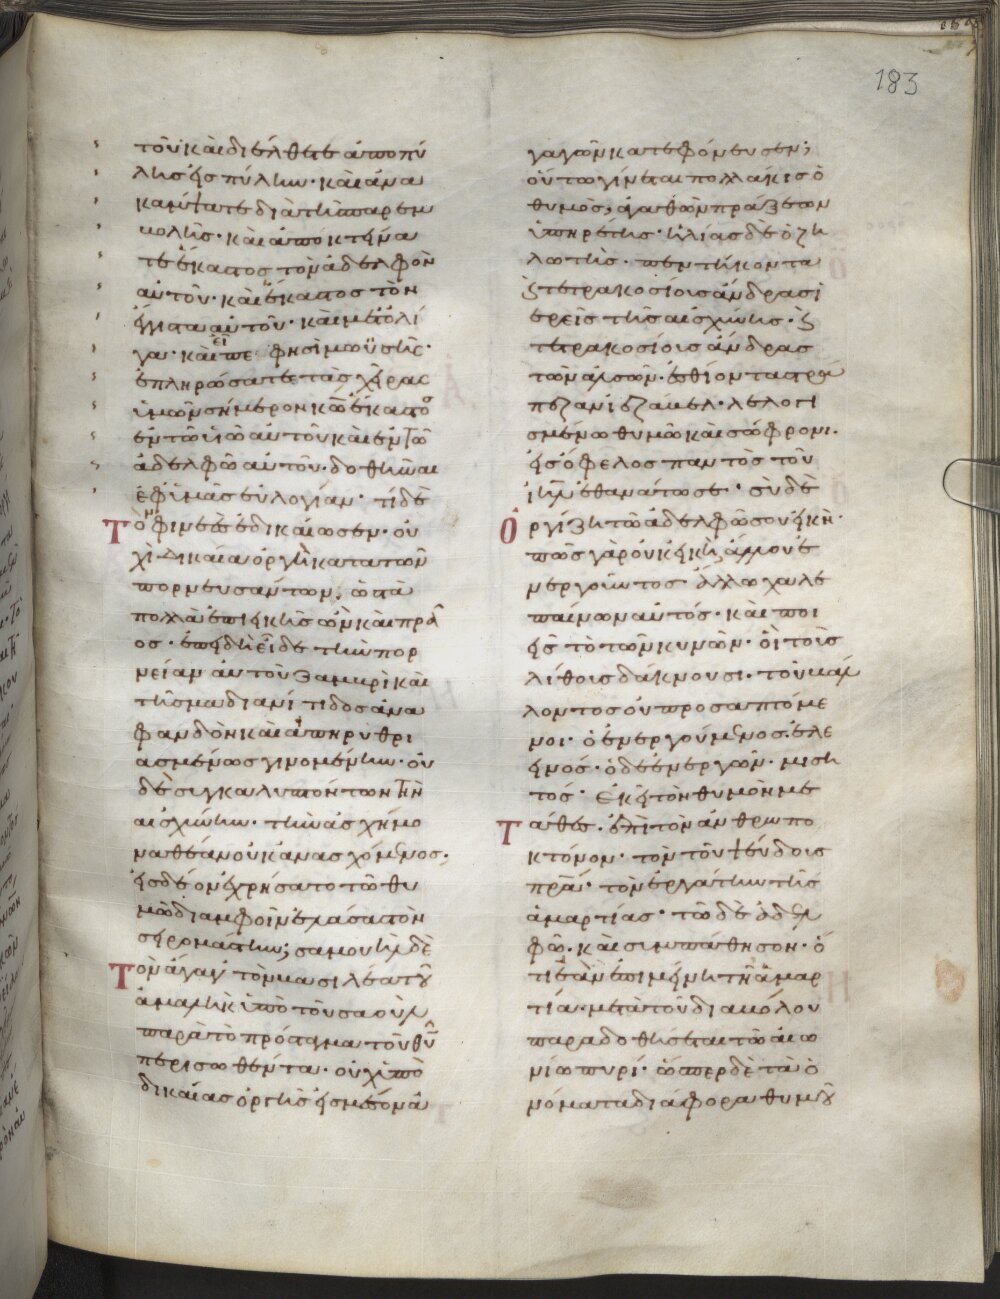 183
τοῦ καὶ διέλθετε ἀπὸ πύ
λης εἰς πύλην· καὶ ἀνα
κάμψατε διὰ τῆς παρεμ
βολῆς· καὶ ἀποκτείνα
τε ἕκαστος τὸν ἀδελφὸν
αὐτοῦ· καὶ ἕκαστος τὸν
ἔγγιστα αὐτοῦ· καὶ μετ' ὀλί
γα· καὶ εἶπε φησὶ μωϋσῆς·
ἐπληρώσατε τὰς χεῖρας
ὑμῶν σήμερον κω ἕκαστος
ἐν τῶ υἱῶ αὐτοῦ καὶ ἐν τῶ
ἀδελφῶ αὐτοῦ· δοθῆναι
ἐφ' ὑμᾶς εὐλογίαν· τί δὲ
Τὸν φινεὲς ἐδικαίωσεν· οὐ
χὶ δικαία ὀργὴ κατὰ τῶν
πορνευσάντων·
πολλὰ ἐπιεικὴς ὢν καὶ πρᾶ
ος· ἐπειδὴ εἶδε τὴν πορ
νείαν αὐτοῦ ζαμιρὶ καὶ
τῆς μαδιανίτιδος ἀνα
φανδὸν καὶ ἀπηρυθρι
ασμένως γινομένην· οὐ
δὲ συγκαλυπτόντων τὴν
αἰσχύνην· τὴν ἀσχημο
να θέαν οὐκ ἀνασχόμενος·
εἰς δέον ἐχρήσατο τῶ θυ
μῶ διαμφοῖν ἐλάσας τὸν
σειρομάστην; σαμουὴλ δὲ
Τὸν ἀγὰγ τὸν βασιλέα τοῦ
ἀμαλὴκ ὑπὸ τοῦ σαοὺλ
παρὰ τὸ πρόσταγμα τοῦ θυ
περισωθέντα· οὐχ ὑπὸ
δικαίας ὀργῆς εἰς μέσον ἀ
γαγὼν κατεφόνευσεν;
οὕτω γίνεται πολλάκις ὁ
θυμὸς, ἀγαθῶν πράξεων
ὑπηρέτης· ἠλίας δὲ ὁ ζη
λωτὴς· πεντήκοντα
καὶ τετρακοσίους ἄνδρας ἱ
ερεῖς τῆς αἰσχύνης· καὶ
τετρακοσίους ἄνδρας
τῶν ἀλσῶν· ἐσθίοντας τρά
πεζαν ἰεζάβελ· λελογι
σμένω θυμῶ καὶ σώφρονι·
εἰς ὄφελος παντὸς τοῦ
ιηλ ἐθανάτωσε· σὺ δὲ
Ὀργίζη τῶ ἀδελφῶ σου εἰκῆ·
πῶς γὰρ οὐκ εἰκῆ, ἄλλου ἐ
νεργοῦντος ἄλλω χαλε
παίνων αὐτός· καὶ ποι
εῖς τὸ τῶν κυνῶν· οἳ τοὺς
λίθους δάκνουσι· τοῦ βάλ
λοντος οὐ προσαπτόμε
νοι· ὁ ἐνεργούμενος ἐλε
εινός· ὁ δὲ ἐνεργῶν· μιση
τός· Ἐκεῖ τὸν θυμὸν με
Τάθες· ἐπὶ τὸν ἀνθρωπο
κτόνον· τὸν τοῦ ψεύδους
πρα· τὸν ἐργάτην τῆς
ἁμαρτίας· τῶ δὲ ἀδελ
φῶ· καὶ συμπάθησον· ὁ
τι ἐὰν ἐπιμείνη τῆ ἁμαρ
τία· μετὰ τοῦ διαβόλου
παραδοθήσεται τῶ αἰω
νίω πυρί· ὥσπερ δὲ τὰ ὀ
νόματα διάφορα θυμοῦ